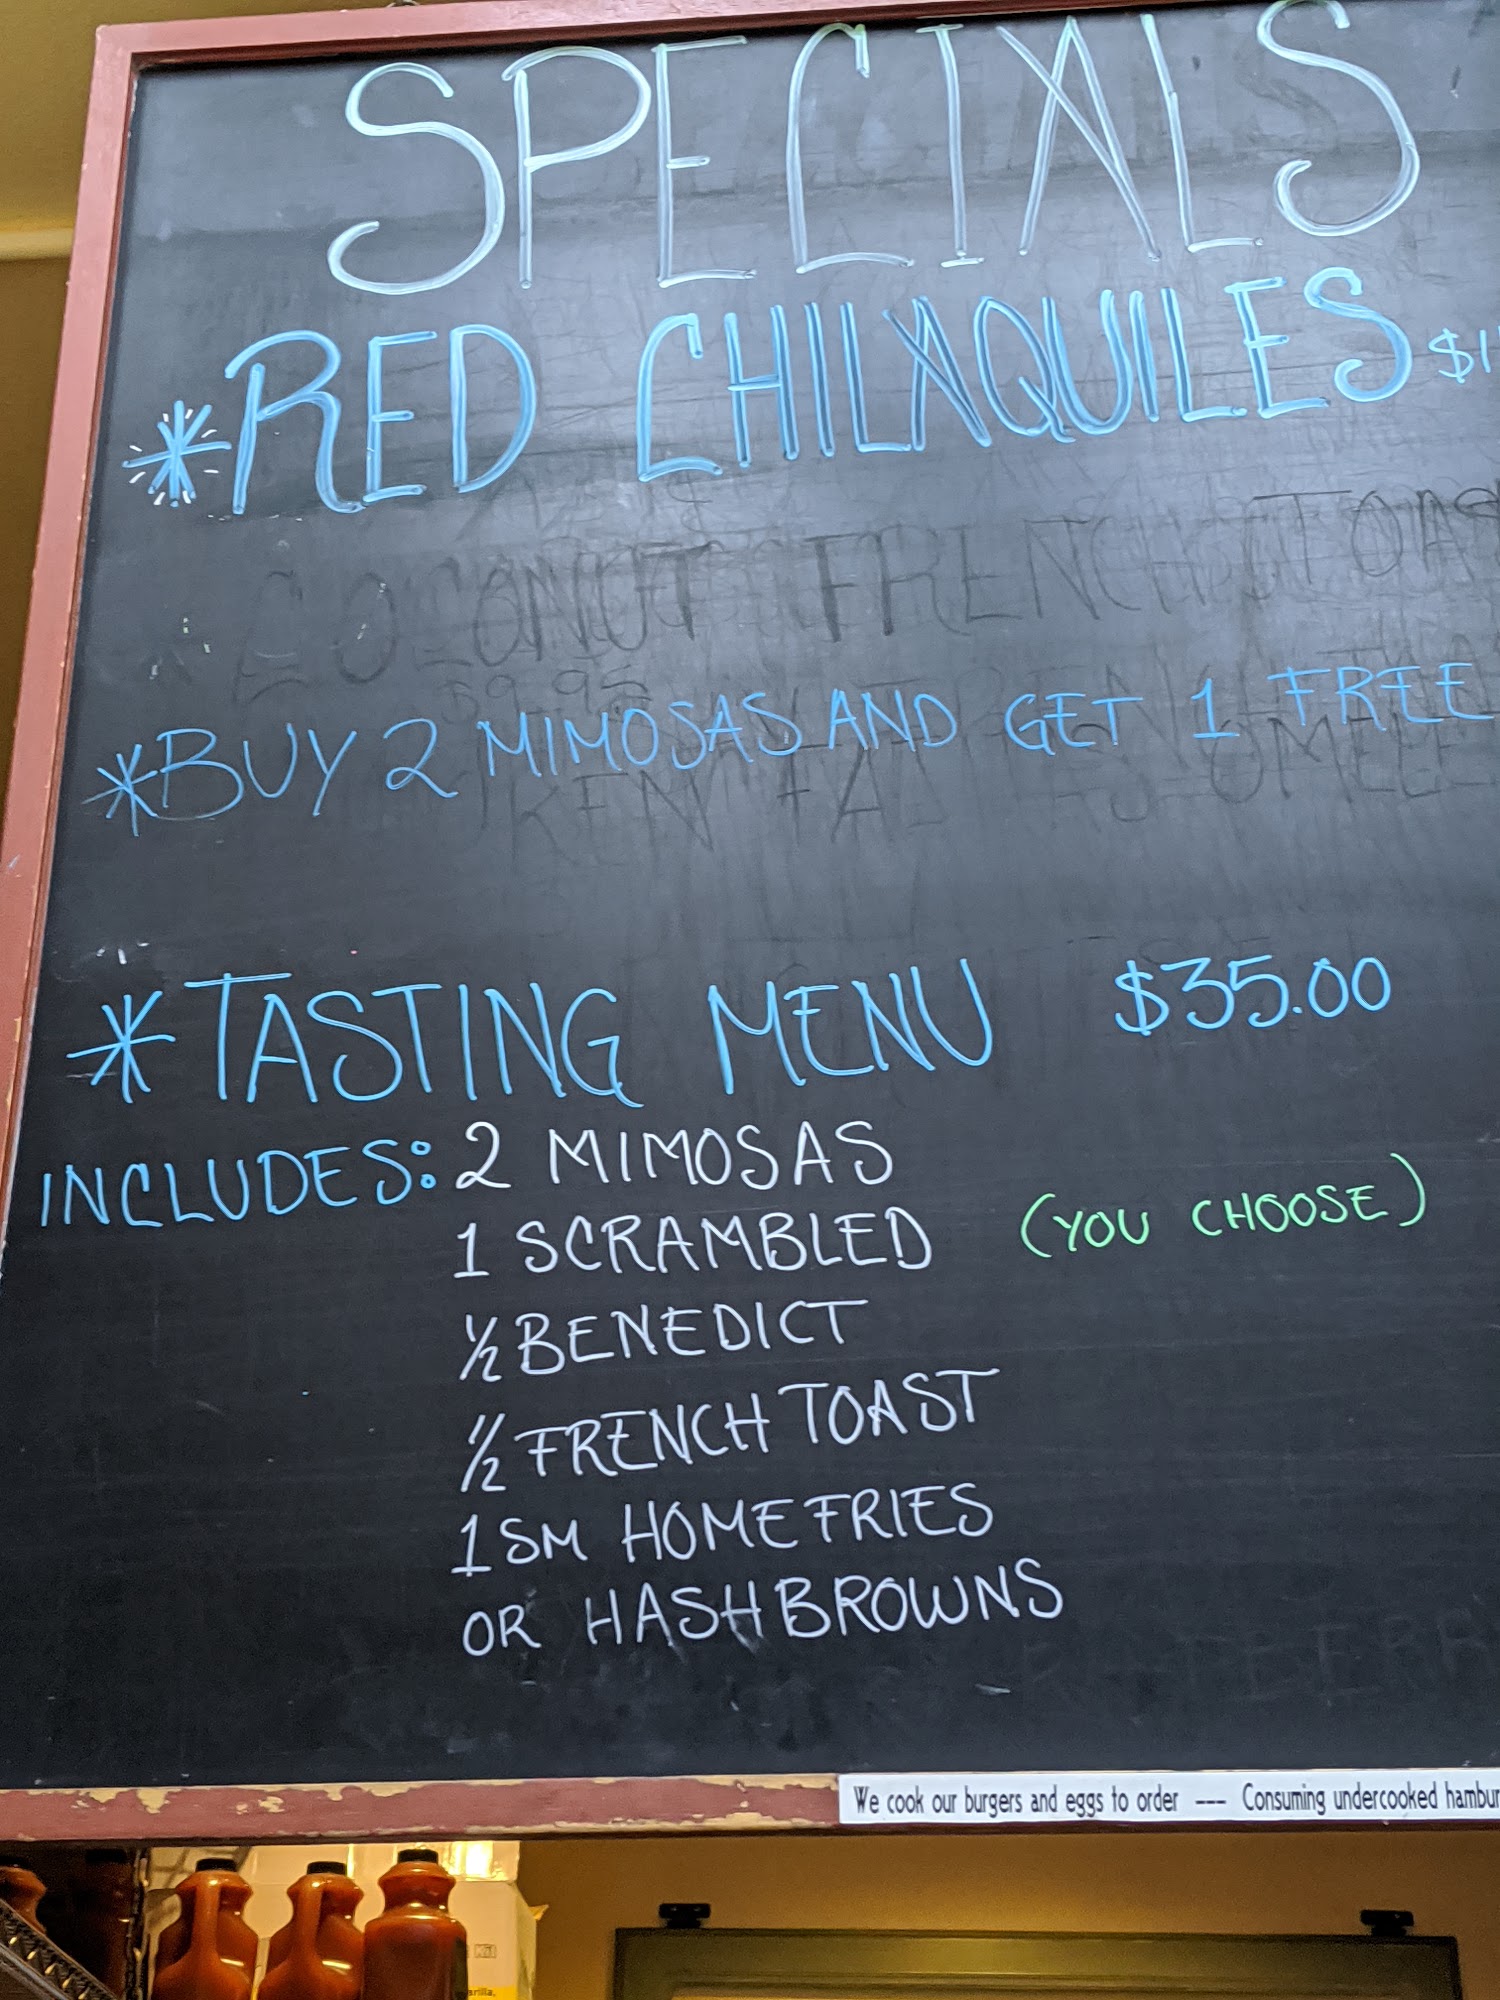 SPECIALS
*RED CHILAQUILES
COCONUT FRENCH
$9.95
*BUY 2 MIMOSAS AND GET 1 FREE
*TASTING MENU $35.00
INCLUDES: 2 MIMOSAS
1 SCRAMBLED (YOU CHOOSE)
½ BENEDICT
½ FRENCH TOAST
1 SM HOMEFRIES
OR HASHBROWNS
We cook our burgers and eggs to order --- Consuming undercooked
Kit